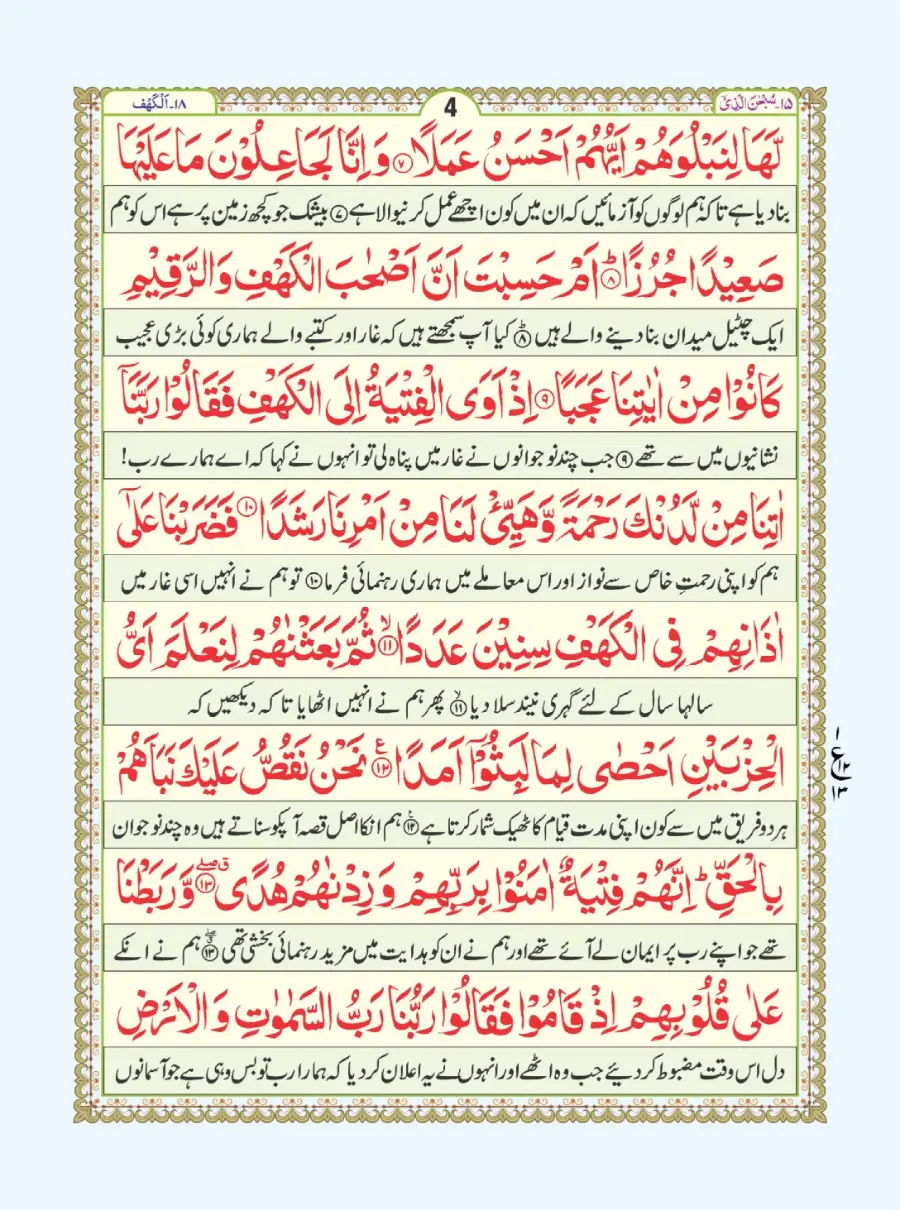 ۱۵۔سُبْحٰنَ الَّذِیْٓ
4
۱۸۔اَلْكَهْف
لَّهَا لِنَبْلُوَهُمْ اَیُّهُمْ اَحْسَنُ عَمَلًا ۷ وَ اِنَّا لَجَاعِلُوْنَ مَا عَلَیْهَا
بنا دیا ہے تاکہ ہم لوگوں کو آزمائیں کہ ان میں کون اچھے عمل کرنیوالا ہے ۷ بیشک جو کچھ زمین پر ہے اس کو ہم
صَعِیْدًا جُرُزًا ۸ؕ اَمْ حَسِبْتَ اَنَّ اَصْحٰبَ الْكَهْفِ وَ الرَّقِیْمِ
ایک چٹیل میدان بنا دینے والے ہیں ۸ؕ کیا آپ سمجھتے ہیں کہ غار اور کتبے والے ہماری کوئی بڑی عجیب
كَانُوْا مِنْ اٰیٰتِنَا عَجَبًا ۹ اِذْ اَوَی الْفِتْیَةُ اِلَی الْكَهْفِ فَقَالُوْا رَبَّنَاۤ
نشانیوں میں سے تھے ۹ جب چند نوجوانوں نے غار میں پناہ لی تو انہوں نے کہا کہ اے ہمارے رب!
اٰتِنَا مِنْ لَّدُنْكَ رَحْمَةً وَّ هَیِّئْ لَنَا مِنْ اَمْرِنَا رَشَدًا ۱۰ فَضَرَبْنَا عَلٰۤی
ہم کو اپنی رحمتِ خاص سے نواز اور اس معاملے میں ہماری رہنمائی فرما ۱۰ تو ہم نے انہیں اسی غار میں
اٰذَانِهِمْ فِی الْكَهْفِ سِنِیْنَ عَدَدًا ۱۱ۙ ثُمَّ بَعَثْنٰهُمْ لِنَعْلَمَ اَیُّ
سالہا سال کے لئے گہری نیند سلا دیا ۱۱ۙ پھر ہم نے انہیں اٹھایا تاکہ دیکھیں کہ
الْحِزْبَیْنِ اَحْصٰی لِمَا لَبِثُوْۤا اَمَدًا ۱۲ ع نَحْنُ نَقُصُّ عَلَیْكَ نَبَاَهُمْ
۱
ع ۱۲
۱۳
ہر دو فریق میں سے کون اپنی مدت قیام کا ٹھیک شمار کرتا ہے ۱۲ ع ہم انکا اصل قصہ آپکو سناتے ہیں وہ چند نوجوان
بِالْحَقِّ ؕ اِنَّهُمْ فِتْیَةٌ اٰمَنُوْا بِرَبِّهِمْ وَ زِدْنٰهُمْ هُدًی ۱۳ ق صلے وَّ رَبَطْنَا
تھے جو اپنے رب پر ایمان لے آئے تھے اور ہم نے ان کو ہدایت میں مزید رہنمائی بخشی تھی ۱۳ ہم نے انکے
عَلٰی قُلُوْبِهِمْ اِذْ قَامُوْا فَقَالُوْا رَبُّنَا رَبُّ السَّمٰوٰتِ وَ الْاَرْضِ
دل اس وقت مضبوط کر دئیے جب وہ اٹھے اور انہوں نے یہ اعلان کر دیا کہ ہمارا رب تو بس وہی ہے جو آسمانوں